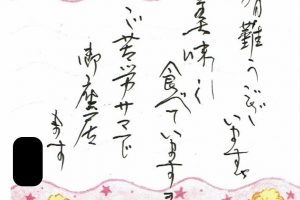 有難うござ
いますよ
美味し
食べていますよ
ご苦労サマで
御座居
ます